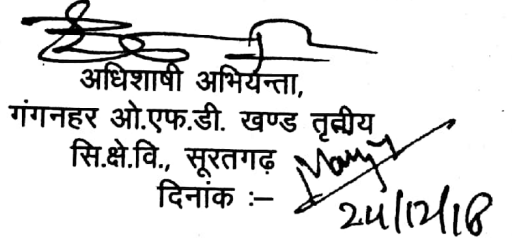 अधिशाषी अभियन्ता,
गंगनहर ओ.एफ.डी. खण्ड तृतीय
सि.क्षे.वि., सूरतगढ़
दिनांक :– 24/12/18